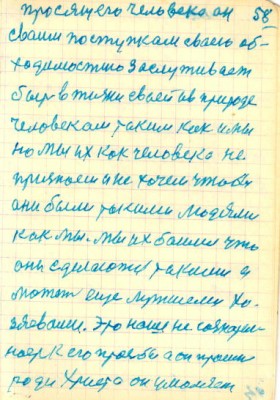 просящего человека он 58
своим поступкам своею об-
ходимостью заслуживает
быть в жизни своей и в природе
человекам таким как и мы
но мы их как человека не
признаем и не хочем чтобы
они были такими людями
как мы. мы их боимся что
они сделаются такими а
может еще лучшеми хо-
зяевами. Это наше не
к его прозьбы а он просит
ради Христа он умоляет